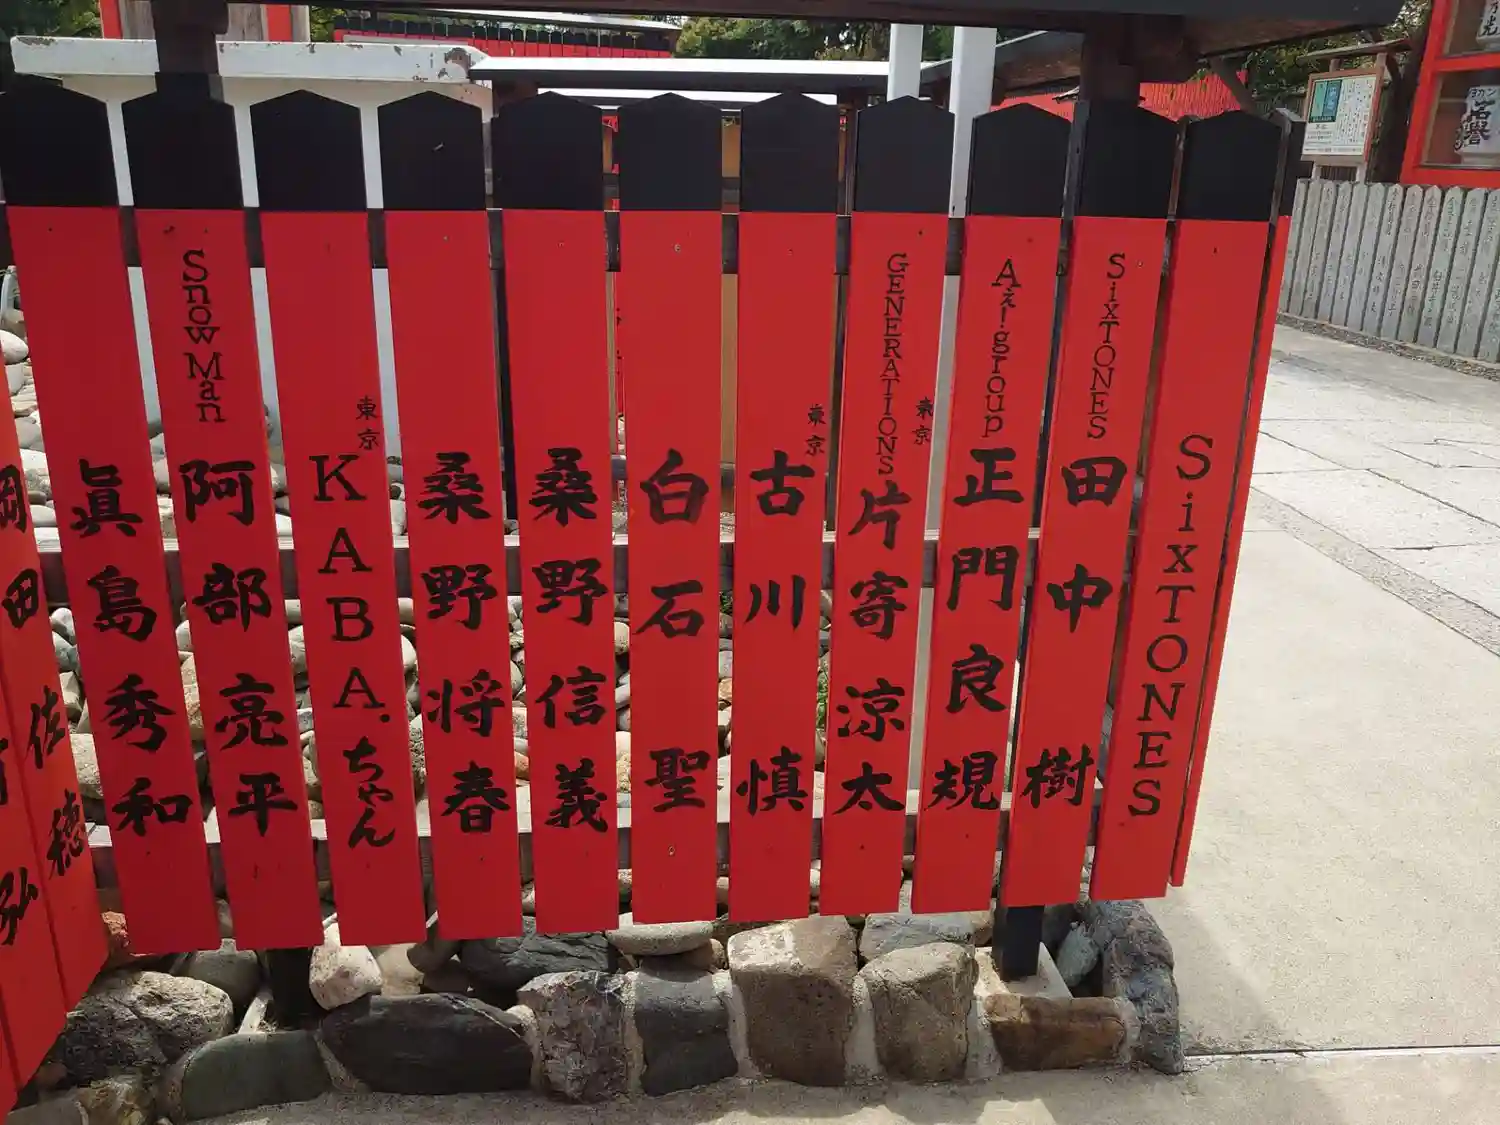 SixTONES
SixTONES 田中樹
Aぇ!group 正門良規
東京
GENERATIONS 片寄涼太
東京
古川慎
白石聖
桑野信義
桑野将春
東京
KABA.ちゃん
Snow Man 阿部亮平
眞島秀和
佐 穂
岡田
弘
ヨカン
高誉